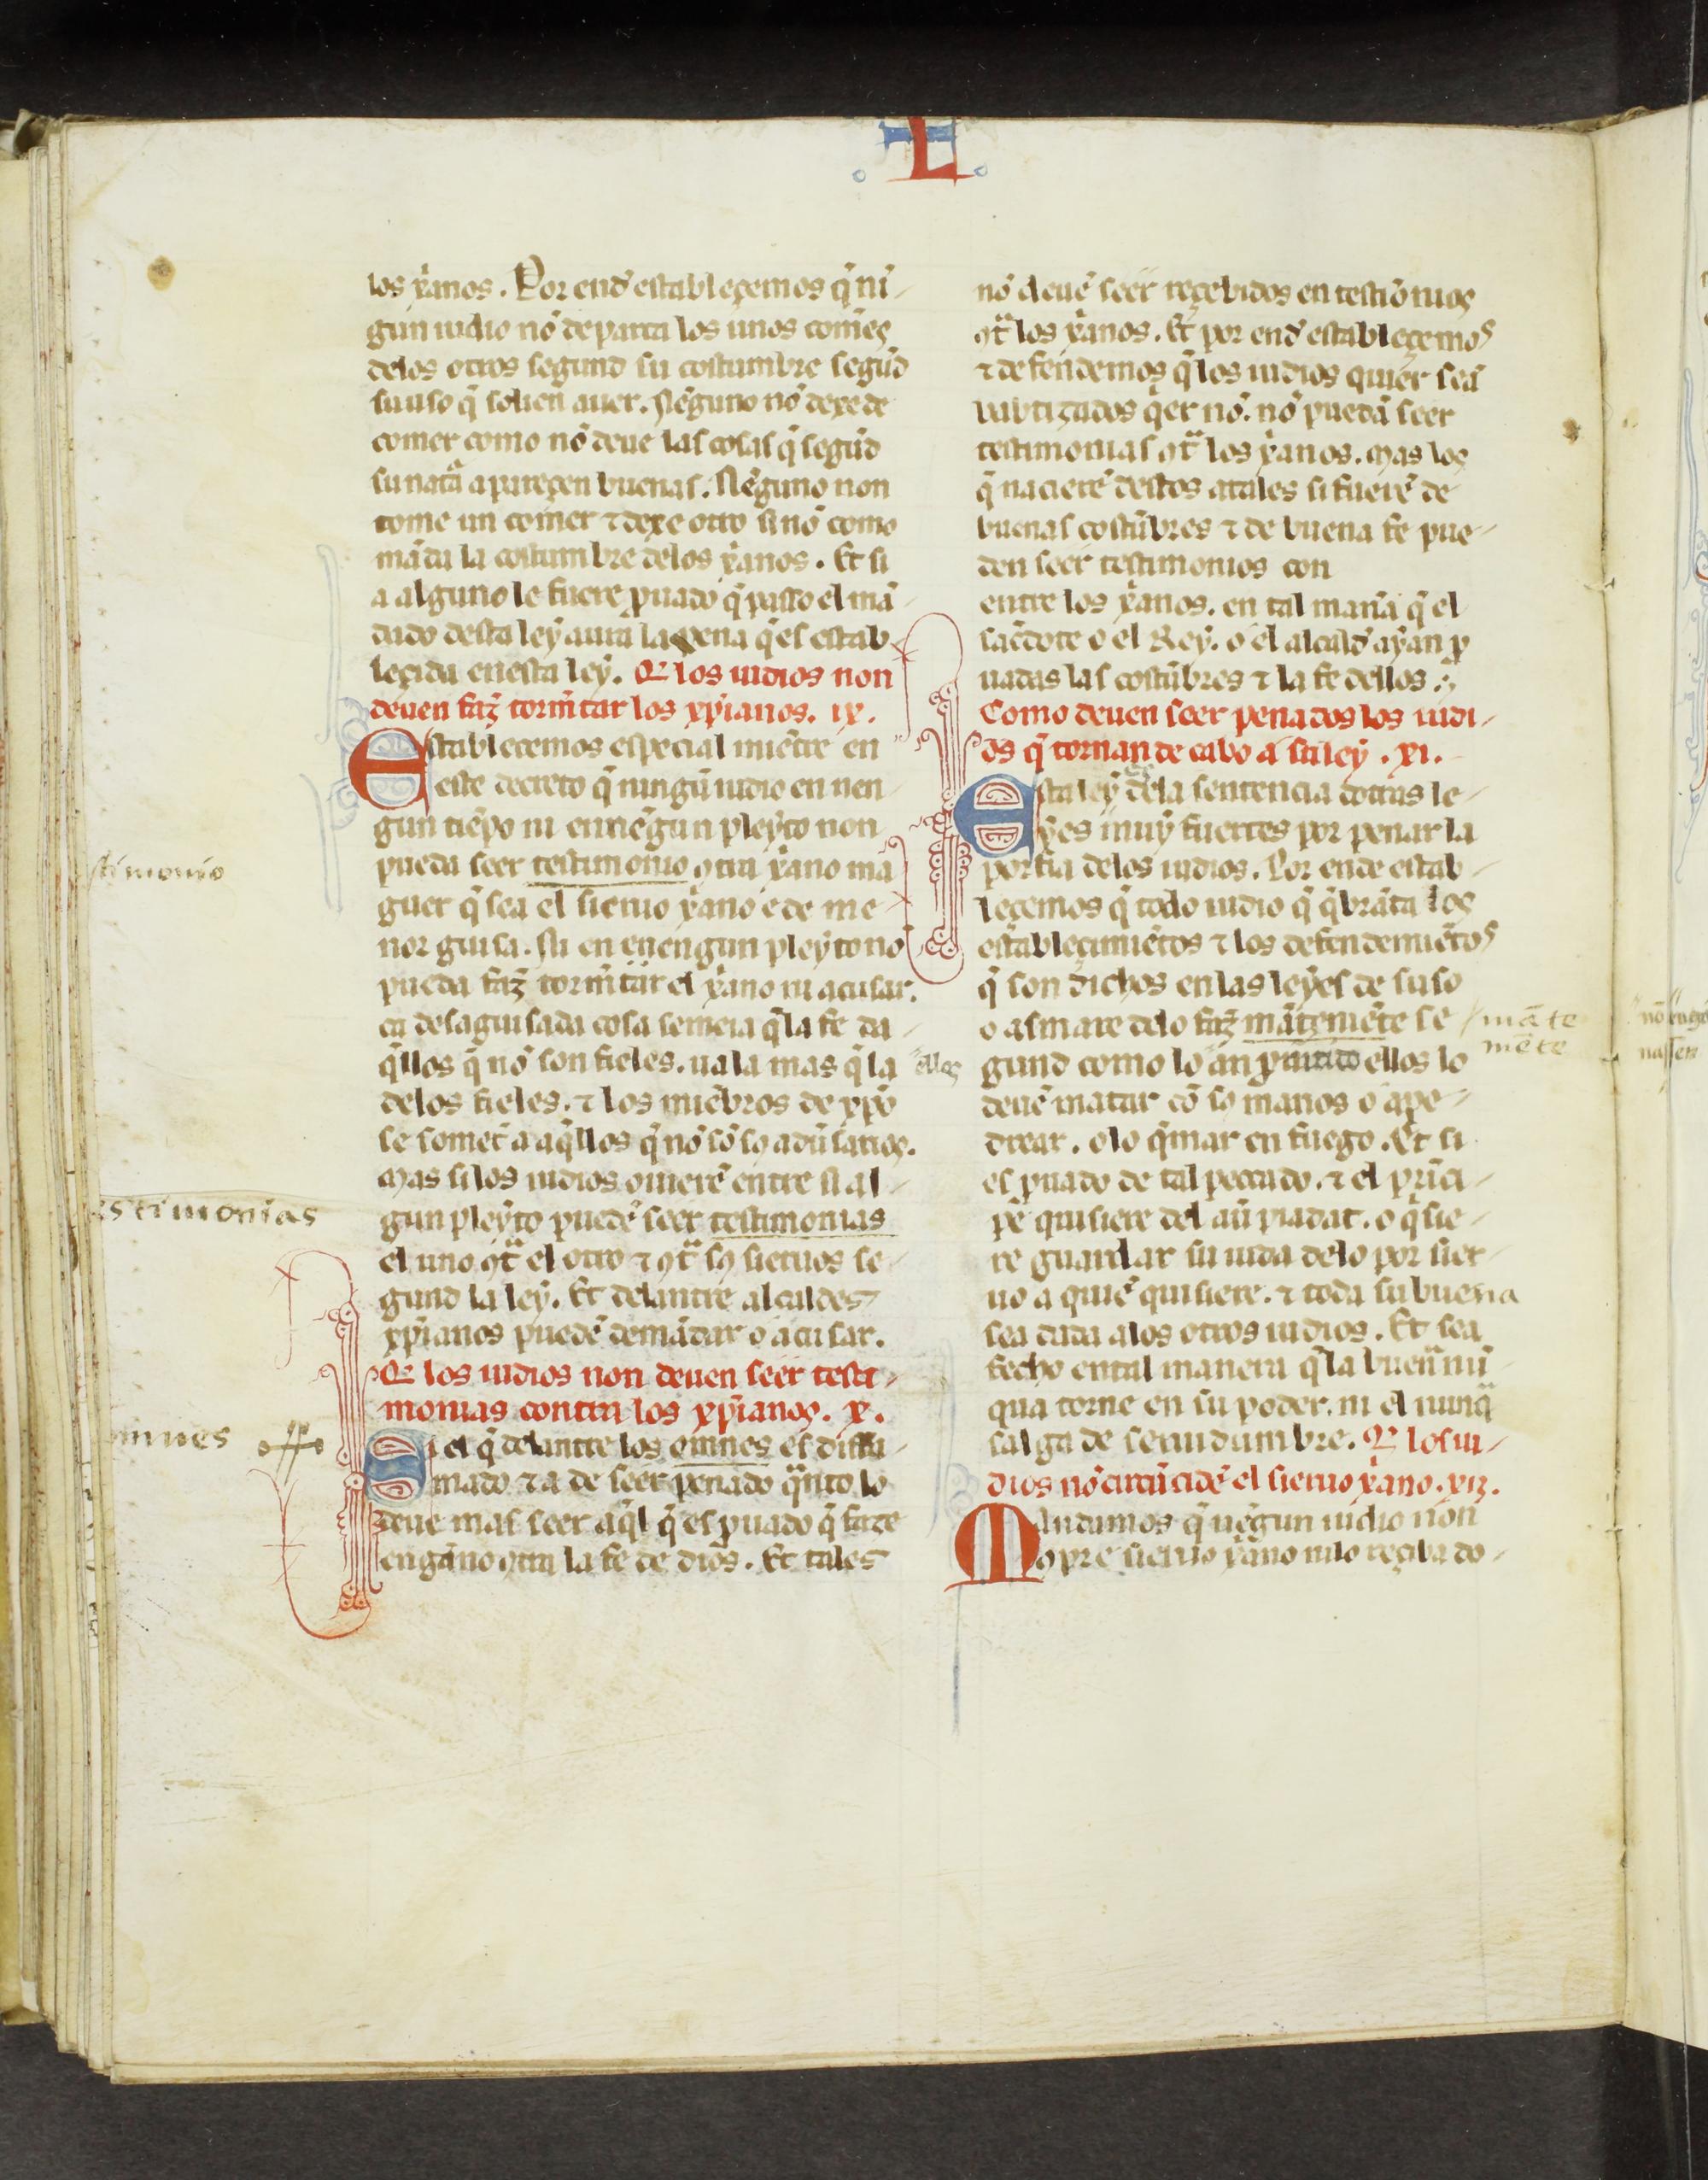 L
los xp̃anos. Por end̃ estableçemos q̃ ni-
gun iudio nõ departa los unos com̃eṣ
delos otros segund su costumbre segũd
su uso q̃ solien auer. Nẽguno nõ dexe de
comer como nõ deue las cosas q̃ segũd
su natã apareçen buenas. Nẽguno non
tome un comer ⁊ dexe otro si nõ como
mãda la costumbre delos xp̃anos. Et si
a alguno le fuere prouado q̃ passo el mã-
dado desta ley aura la pena q̃ es estab-
leçida en esta ley. Q̃ los iudios non
deuen faz̃ torm̃tar los xp̃ianos. ix.
Establecemos especial miẽtre en
este decreto q̃ ningũ iudio en nen-
gun tiẽpo ni en nẽgun pleyto non
pueda seer testimonio contra xp̃ano ma-
guer q̃ sea el sieruo xp̃ano e de me-
nor guisa. Ni en enengun pleyto nõ
pueda faz̃ torm̃tar el xp̃ano ni acusar.
ca desaguisada cosa semeia q̃ la fe da-
q̃llos q̃ nõ son fieles. uala mas q̃ la
delos fieles. ⁊ los miẽbros de xp̃o
se somet̃ a aq̃llos q̃ nõ sõ sos aduersarios.
Mas si los iudios ouierẽ entre si al-
gun pleyto puedẽ seer testimonias
el uno contra el otro ⁊ contra sos sieruos se-
gund la ley. Et delantre alcaldes
xp̃ianos puedẽ demãdar o acusar.
Q̃ los iudios non deuen seer testi-
monias contra los xp̃ianos. x.
Si el q̃ delantre los omnes es diffa-
mado ⁊ a de seer penado quanto lo
deue mas seer aq̃l q̃ es prouado q̃ faze
engãno contra la fe de dios. Et tales
nõ deuẽ seer reçebidos en testimõnios
contra los xp̃anos. Et por end̃ establecemos
⁊ defendemos q̃ los iudios quier seã
babtizados q̃er nõ. nõ puedã seer
testimonias contra los xp̃anos. Mas los
q̃ nacierẽ destos atales si fuerẽ de
buenas costũbres ⁊ de buena fe pue-
den seer testimonios con
entre los xp̃anos. en tal manã q̃ el
sac̃dote o el Rey. o el alcald̃ ayan pro
uadas las costũbres ⁊ la fe dellos.
Como deuen seer penados los iudi-
os q̃ tornan de cabo a su ley. xi.
Esta ley dela sentencia dotras le-
yes muy fuertes por penar la
porfia delos iudios. Por ende estab-
leçemos q̃ todo iudio q̃ q̃brãta los
establecimiẽtos ⁊ los defendemiẽtos
q̃ son dichos en las leyes de suso
o asmare delo faz̃ mãteniẽte se-
gund como lo an prometido ellos lo
deuẽ matar cõ so manos o ape-
drear. o lo q̃mar en fuego. Et si
es prouado de tal peccado. ⁊ el prĩci-
pe quisiere del auer piadat. o q̃sie-
re guardar su uida delo por sier-
uo a quiẽ quisiere. ⁊ toda su buena
sea dada alos otros iudios. Et sea
fecho en tal manera q̃ la buena nũ
qua torne en su poder. ni el nunqua
salga de seruidumbre. Q̃ los iu-
dios nõ circũcidẽ el sieruo xp̃ano. xij.
Mandamos q̃ nẽgun iudio non
copre sieruo xp̃ano nilo reçiba do-
stimonio
ellos
estimonias
omnes
mãte
mẽte